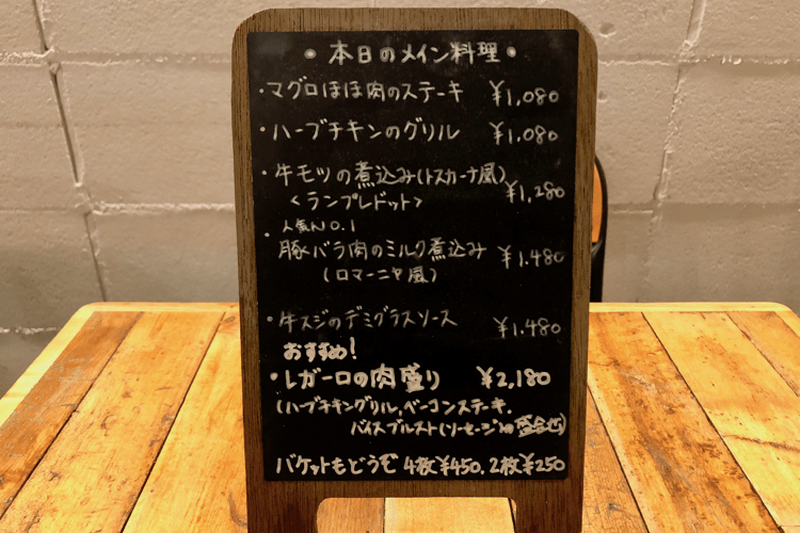 • 本日のメイン料理 •
・マグロほほ肉のステーキ ¥1,080
・ハーブチキンのグリル ¥1,080
・牛モツの煮込み(トスカーナ風)
<ランプレドット> ¥1,280
人気NO.1
・豚バラ肉のミルク煮込み ¥1.480
(ロマーニャ風)
・牛スジのデミグラスソース ¥1.480
おすすめ!
・レガーロの肉盛り ¥2,180
(ハーブチキングリル,ベーコンステーキ.
バイスブルスト(ソーセージ)の盛合せ)
バケットもどうぞ 4枚¥450. 2枚¥250